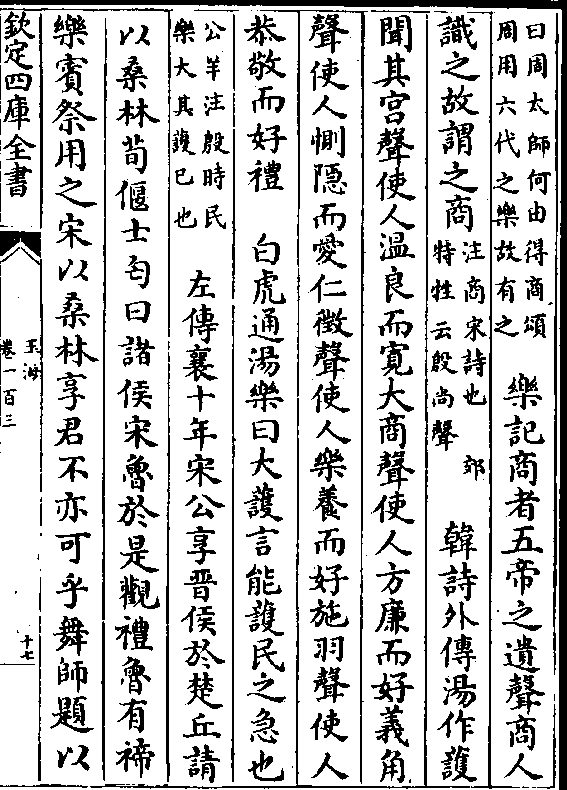 曰周太師何由得商頌
周用六代之樂故有之
樂記商者五帝之遺聲商人
識之故謂之商
注商宋詩也 郊
特牲云殷尚聲
韓詩外傳湯作頀
聞其宮聲使人溫良而寛大商聲使人方廉而好義角
聲使人惻隠而愛仁徵聲使人樂養而好施羽聲使人
恭敬而好禮 白虎通湯樂曰大頀言能頀民之急也
公羊注殷時民
樂大其頀已也
左傳襄十年宋公享晋侯於楚丘請
以桑林荀偃士匄曰諸侯宋魯於是觀禮魯有禘
樂賓祭用之宋以桑林享君不亦可乎舞師題以
欽定四庫全書
玉海
卷一百三
十七